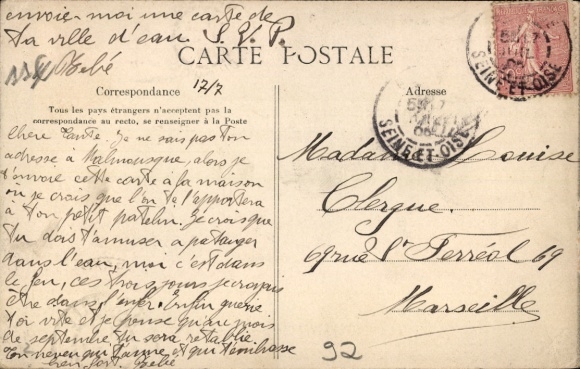 envoie-moi une carte de
ta ville d'eau S.V.P.
Bébé
CARTE POSTALE
Correspondance
17/7
Tous les pays étrangers n'acceptent pas la
correspondance au recto, se renseigner à la Poste
Chere Tante, Je ne sais pas ton
adresse a Malmousque, alors je
t'envoie cette carte à la maison
où je crois que l'on te l'apportera
à ton petit patelin. Je crois que
tu dois t'amuser a patauger
dans l'eau, moi c'est dans
le feu, ces trois jours je croyais
être dans l'enfer. Enfin guérie
toi vite et je pense qu'au mois
de septembre tu sera rétablie
Ton neveu qui t'aime et qui t'embrasse
bien fort. Bébé
Adresse
Madame Louise
Clergue
69 rue St Ferréol 69
Marseille
SEINE-ET-OISE
SEINE-ET-OISE
92